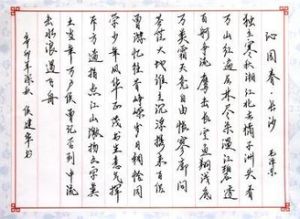 沁园春 长沙
毛泽东
独立寒秋湘江北去橘子洲头看
万山红遍层林尽染漫江碧透
百舸争流鹰击长空鱼翔浅底
万类霜天竞自由怅寥廓问
苍茫大地谁主沉浮携来百侣
曾游忆往昔峥嵘岁月稠恰同
学少年风华正茂书生意气挥
斥方遒指点江山激扬文字粪
土当年万户侯曾记否到中流
击水浪遏飞舟
辛卯年深秋 侯建 书